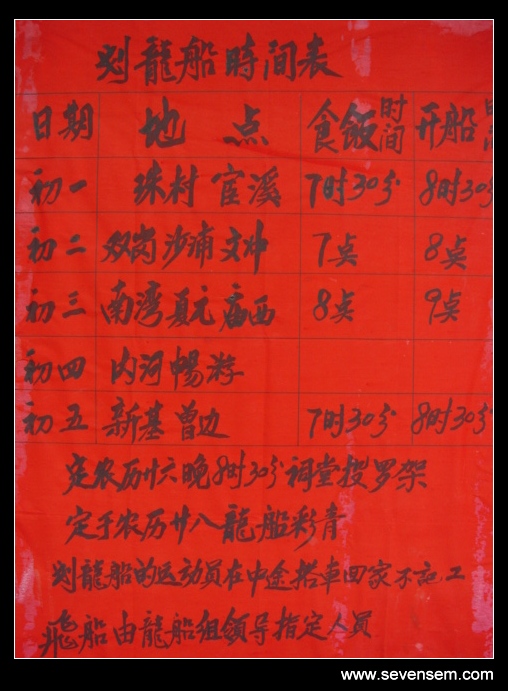 划龍船時间表
日期 地点 食飯时间 开船时间
初一 珠村 宦溪 7时30分 8时30分
初二 双岗 沙浦 文冲 7点 8点
初三 南湾 夏元 庙西 8点 9点
初四 内河暢游
初五 新基 曾边 7时30分 8时30分
定农历廿六晚8时30分祠堂投罗架
定于农历廿八龍船彩青
划龍船的运动员在中途搭車回家不記工
飛船由龍船组领导指定人员
www.sevensem.com